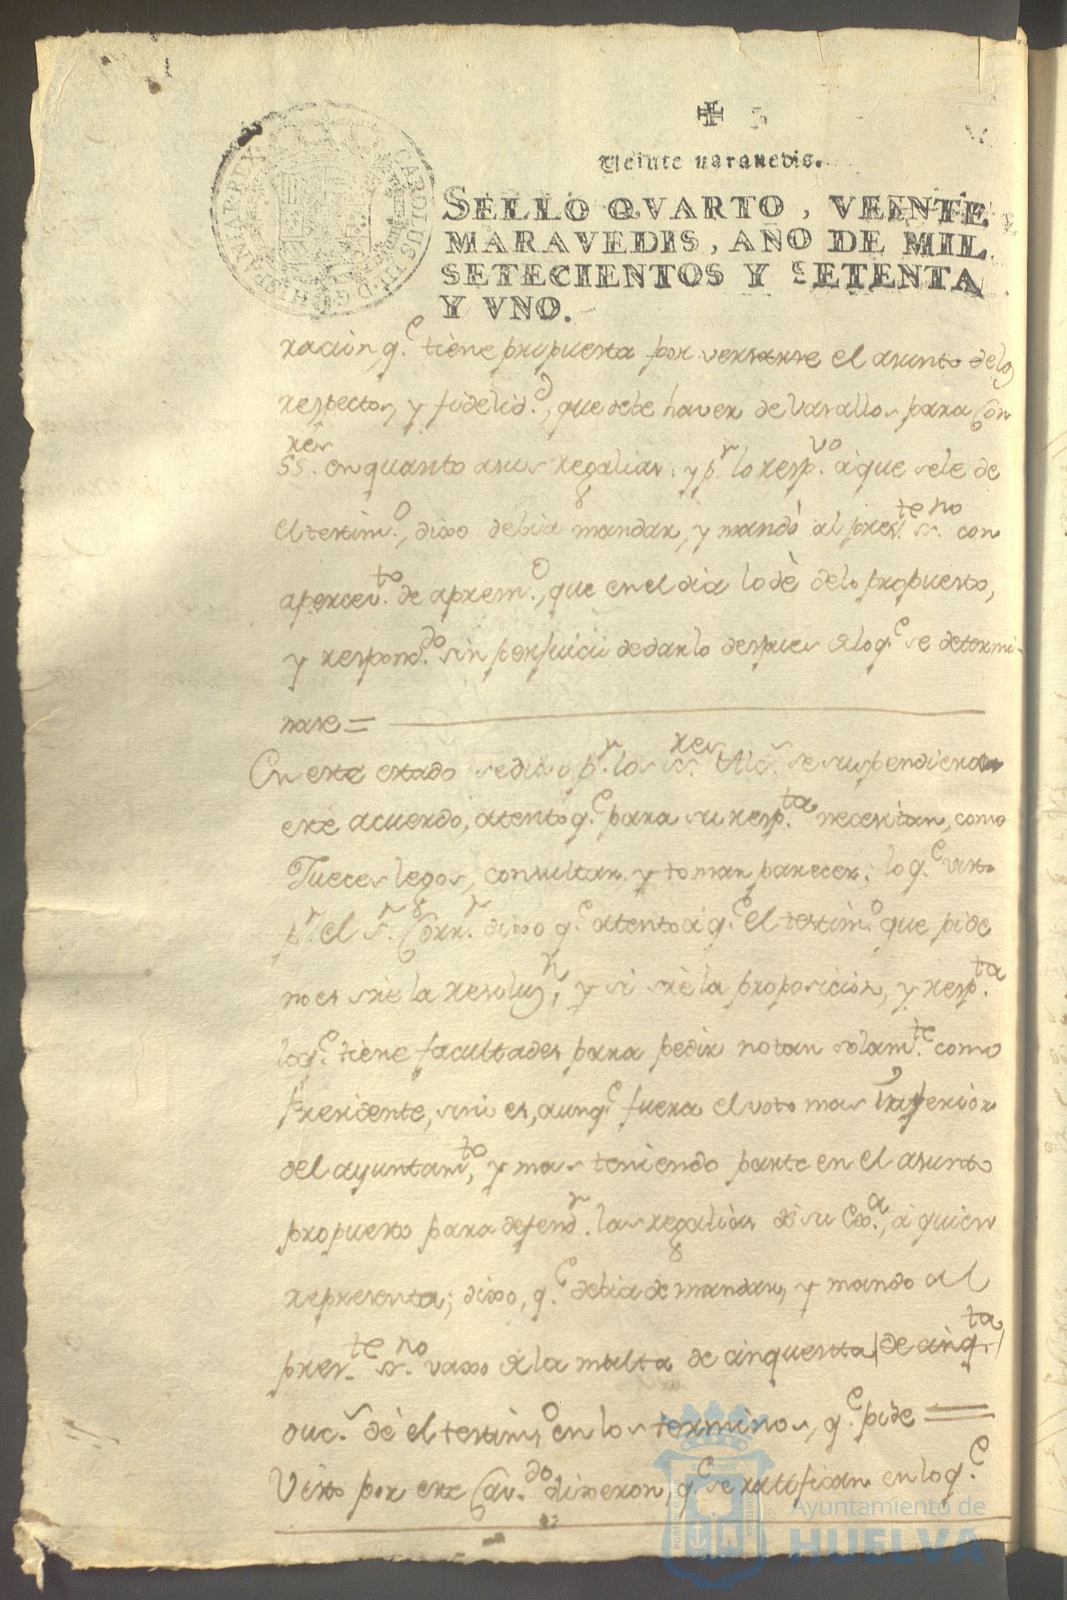 CAROLUS III D G HISPANIAR REX
Veinte maravedis.
SELLO QVARTO, VEINTE
MARAVEDIS, AÑO DE MIL
SETECIENTOS Y SETENTA
Y VNO.
racion q.e tiene propuesta por versarse el asunto delos
respectos, y fidelid.d, que debe haver de vasallos para con
ss.res en quanto asus regalias; y p.r lo resp.vo à que sele de
el testim.o, dixo debia mandar, y mandò al pres.te ss.no con
apercev.to de aprem.o, que en el dia lo dè delo propuesto,
y respond.do sin perjuicio dedarlo despues delo q.e se determi-
nase =
En este estado sedixo p.r los ss.res Alc.s se suspendiera
este acuerdo, atento q.e para su resp.ta necesitan, como
Jueces legos, consultar y tomar parecer; lo q.e visto
p.r el s.r Corr.r dixo q.e atento à q.e el testim.o que pide
no es sre la resoluz.n, y si sre la proposicion, y resp.ta
loq.e tiene facultades para pedir no tan solam.te como
Presidente, sino es, aunq.e fuera el voto mas inferior
del ayuntam.to, y mas teniendo parte en el asunto
propuesto para defend.r las regalias de su Ex.a, à quien
representa; dixo, q.e debia de mandar, y mando al
pres.te ss.no vaxo de la multa de cinquenta de cinq.ta
duc.s dè el testim.o en los terminos, q.e pide =
Visto por este Cav.do dixeron, q.e se ratifican en lo q.e
Ayuntamiento de
HUELVA